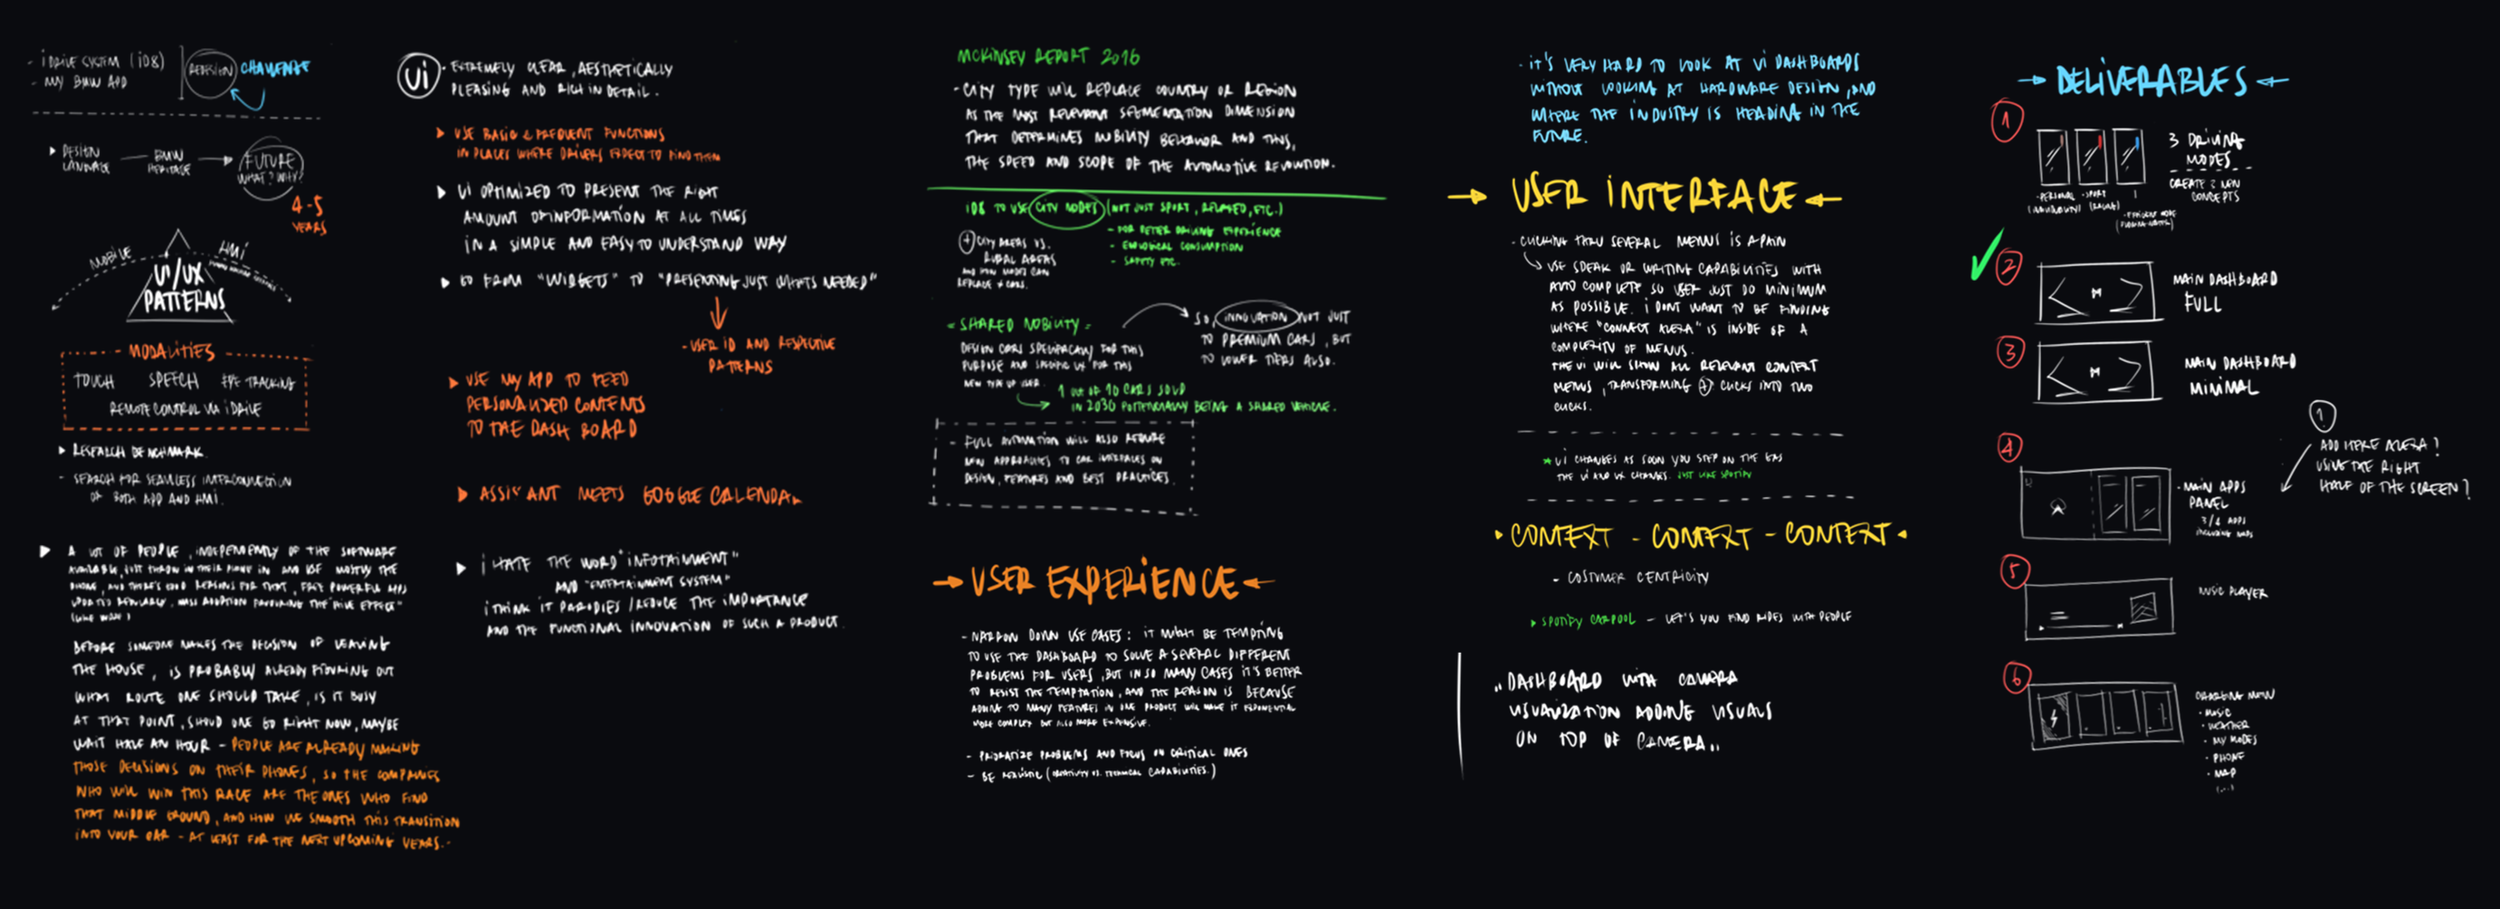 - iDRIVE SYSTEM (iD8)
- MY BMW APP
REDESIGN CHALLENGE
DESIGN LANGUAGE — BMW HERITAGE → FUTURE WHAT? WHY?
4-5
YEARS
MOBILE
HMI
UI/UX
PATTERNS
- MODALITIES
TOUCH SPEECH EYE TRACKING
REMOTE CONTROL VIA iDRIVE
RESEARCH BENCHMARK
- SEARCH FOR SEAMLESS INTERCONNECTION
OF BOTH APP AND HMI.
A LOT OF PEOPLE, INDEPENDENTLY OF THE SOFTWARE
AVAILABLE, JUST THROW IN THEIR PHONE IN AND USE MOSTLY THE
PHONE, AND THERE'S GOOD REASONS FOR THAT, FREE POWERFUL APPS
UPDATED REGULARLY, MASS ADOPTION FAVORING THE "HIVE EFFECT"
BEFORE SOMEONE MAKES THE DECISION OF LEAVING
THE HOUSE, IS PROBABLY ALREADY FIGURING OUT
WHAT ROUTE ONE SHOULD TAKE, IS IT BUSY
AT THAT POINT, SHOULD ONE GO RIGHT NOW, MAYBE
WAIT HALF AN HOUR - PEOPLE ARE ALREADY MAKING
THOSE DECISIONS ON THEIR PHONES, SO THE COMPANIES
WHO WILL WIN THIS RACE ARE THE ONES WHO FIND
THAT MIDDLE GROUND, AND HOW WE SMOOTH THIS TRANSITION
INTO YOUR CAR - AT LEAST FOR THE NEXT UPCOMING YEARS.-
UI - EXTREMELY CLEAR, AESTHETICALLY
PLEASING AND RICH IN DETAIL.
USE BASIC & FREQUENT FUNCTIONS
IN PLACES WHERE DRIVERS EXPECT TO FIND THEM
UI OPTIMIZED TO PRESENT THE RIGHT
AMOUNT OF INFORMATION AT ALL TIMES
IN A SIMPLE AND EASY TO UNDERSTAND WAY
GO FROM "WIDGETS" TO "PRESENTING JUST WHATS NEEDED"
- USER ID AND RESPECTIVE
PATTERNS
USE MY APP TO FEED
PERSONALIZED CONTENTS
TO THE DASH BOARD
ASSISTANT MEETS GOOGLE CALENDAR
I HATE THE WORD "INFOTAINMENT"
AND "ENTERTAINMENT SYSTEM"
I THINK IT PARODIES / REDUCE THE IMPORTANCE
AND THE FUNCTIONAL INNOVATION OF SUCH A PRODUCT.
MCKINSEY REPORT 2016
- CITY TYPE WILL REPLACE COUNTRY OR REGION
AS THE MOST RELEVANT SEGMENTATION DIMENSION
THAT DETERMINES MOBILITY BEHAVIOR AND THIS,
THE SPEED AND SCOPE OF THE AUTOMOTIVE REVOLUTION.
iD8 TO USE CITY MODES (NOT JUST SPORT, RELAXED, ETC.)
- FOR BETER DRIVING EXPERIENCE
- ECOLOGICAL CONSUMPTION
- SAFETY ETC.
+ CITY AREAS VS.
RURAL AREAS
AND HOW MODES CAN
REPLACE
= SHARED MOBILITY =
DESIGN CARS SPECIFICALLY FOR THIS
PURPOSE AND SPECIFIC UX FOR THIS
NEW TYPE OF USER.
1 OUT OF 10 CARS SOLD
IN 2030 POTENTIALLY BEING A SHARED VEHICLE.
SO, INNOVATION NOT JUST
TO PREMIUM CARS, BUT
TO LOWER TIERS ALSO.
- FULL AUTOMATION WILL ALSO REQUIRE
NEW APPROACHES TO CAR INTERFACES ON
DESIGN, FEATURES AND BEST PRACTICES.
→ USER EXPERIENCE ←
- NARROW DOWN USE CASES: IT MIGHT BE TEMPTING
TO USE THE DASHBOARD TO SOLVE A SEVERAL DIFFERENT
PROBLEMS FOR USERS, BUT IN SO MANY CASES IT'S BETTER
TO RESIST THE TEMPTATION, AND THE REASON IS BECAUSE
ADDING TO MANY FEATURES IN ONE PRODUCT WILL MAKE IT EXPONENTIAL
MORE COMPLEX BUT ALSO MORE EXPENSIVE.
- PRIORATIZE PROBLEMS AND FOCUS ON CRITICAL ONES
- BE REALISTIC (CREATIVITY VS. TECHNICAL CAPABILITIES.)
- IT'S VERY HARD TO LOOK AT UI DASHBOARDS
WITHOUT LOOKING AT HARDWARE DESIGN, AND
WHERE THE INDUSTRY IS HEADING IN THE
FUTURE.
→ USER INTERFACE ←
- CLICKING THRU SEVERAL MENUS IS A PAIN
USE SPEAK OR WRITING CAPABILITIES WITH
AUTO COMPLETE SO USER JUST DO MINIMUM
AS POSSIBLE. I DONT WANT TO BE FINDING
WHERE "CONNECT ALEXA" IS INSIDE OF A
COMPLEXITY OF MENUS.
THE UI WILL SHOW ALL RELEVANT CONTEXT
MENUS, TRANSFORMING CLICKS INTO TWO
CLICKS.
* UI CHANGES AS SOON YOU STEP ON THE GAS
THE UI AND UX CHANGES. JUST LIKE SPOTIFY
CONTEXT - CONTEXT - CONTEXT
- COSTUMER CENTRICITY
SPOTIFY CARPOOL - LET'S YOU FIND RIDES WITH PEOPLE
"DASHBOARD WITH CAMERA
VISUALIZATION ADDING VISUALS
ON TOP OF CAMERA"
→ DELIVERABLES ←
1
3 DRIVING
MODES
CREATE 2 NEW
CONCEPTS
- PERSONAL
- SPORT
- EFFICIENT MODE
2
MAIN DASHBOARD
FULL
3
MAIN DASHBOARD
MINIMAL
4
- MAIN APPS
PANEL
3/4 APPS
INCLUDING MAPS
ADD HERE ALEXA?
USING THE RIGHT
HALF OF THE SCREEN?
5
MUSIC PLAYER
6
CHARGING NOW
- MUSIC
- WEATHER
- MY MODES
- PHONE
- MAP
(...)